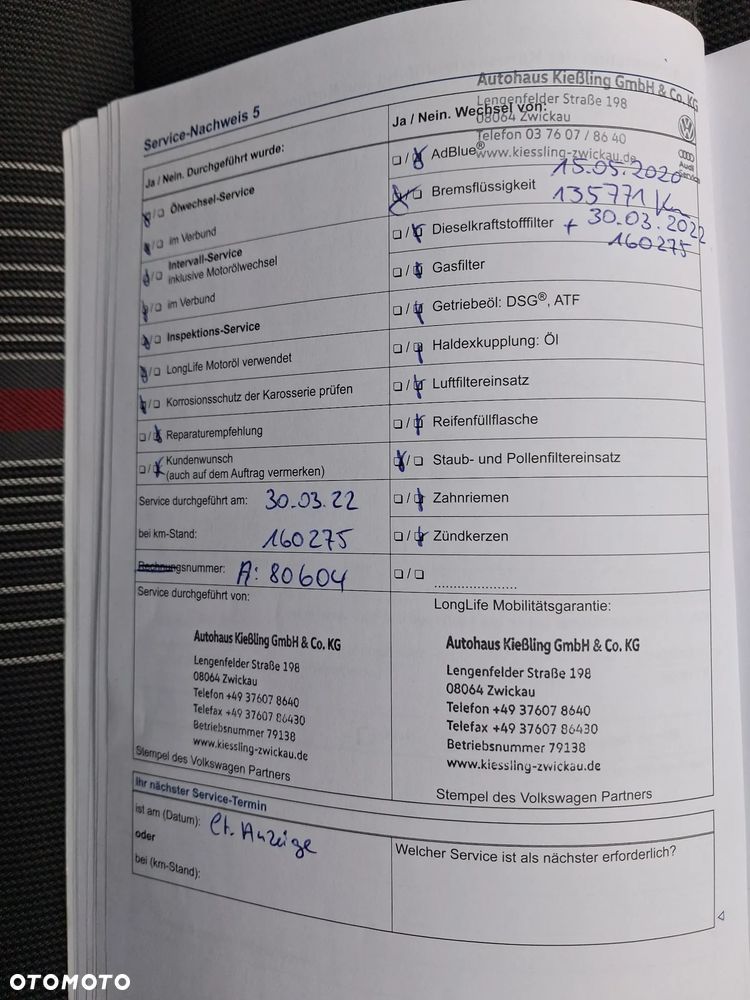 Service-Nachweis 5
Autohaus Kießling GmbH & Co. KG
Lengenfelder Straße 198
08064 Zwickau
Telefon 03 76 07 / 86 40
www.kiessling-zwickau.de
Audi
Service
Ja / Nein. Durchgeführt wurde:
☒/☐ Ölwechsel-Service
☒/☐ im Verbund
☒/☐ Intervall-Service
inklusive Motorölwechsel
☒/☐ im Verbund
☒/☐ Inspektions-Service
☒/☐ LongLife Motoröl verwendet
☒/☐ Korrosionsschutz der Karosserie prüfen
☐/☒ Reparaturempfehlung
☐/☒ Kundenwunsch
(auch auf dem Auftrag vermerken)
Service durchgeführt am: 30.03.22
bei km-Stand: 160275
Rechnungsnummer: A: 80604
Service durchgeführt von:
Autohaus Kießling GmbH & Co. KG
Lengenfelder Straße 198
08064 Zwickau
Telefon +49 37607 8640
Telefax +49 37607 86430
Betriebsnummer 79138
www.kiessling-zwickau.de
Stempel des Volkswagen Partners
Ja / Nein. Wechsel von:
☐/☒ AdBlue®
15.05.2020
☒/☐ Bremsflüssigkeit 135771 Km
☐/☒ Dieselkraftstofffilter + 30.03.2022
160275
☐/☒ Gasfilter
☐/☒ Getriebeöl: DSG®, ATF
☐/☒ Haldexkupplung: Öl
☐/☒ Luftfiltereinsatz
☐/☒ Reifenfüllflasche
☒/☐ Staub- und Pollenfiltereinsatz
☐/☒ Zahnriemen
☐/☒ Zündkerzen
☐/☐ .....................
LongLife Mobilitätsgarantie:
Autohaus Kießling GmbH & Co. KG
Lengenfelder Straße 198
08064 Zwickau
Telefon +49 37607 8640
Telefax +49 37607 86430
Betriebsnummer 79138
www.kiessling-zwickau.de
Stempel des Volkswagen Partners
Ihr nächster Service-Termin
ist am (Datum): lt. Anzeige
oder
bei (km-Stand):
Welcher Service ist als nächster erforderlich?
OTOMOTO